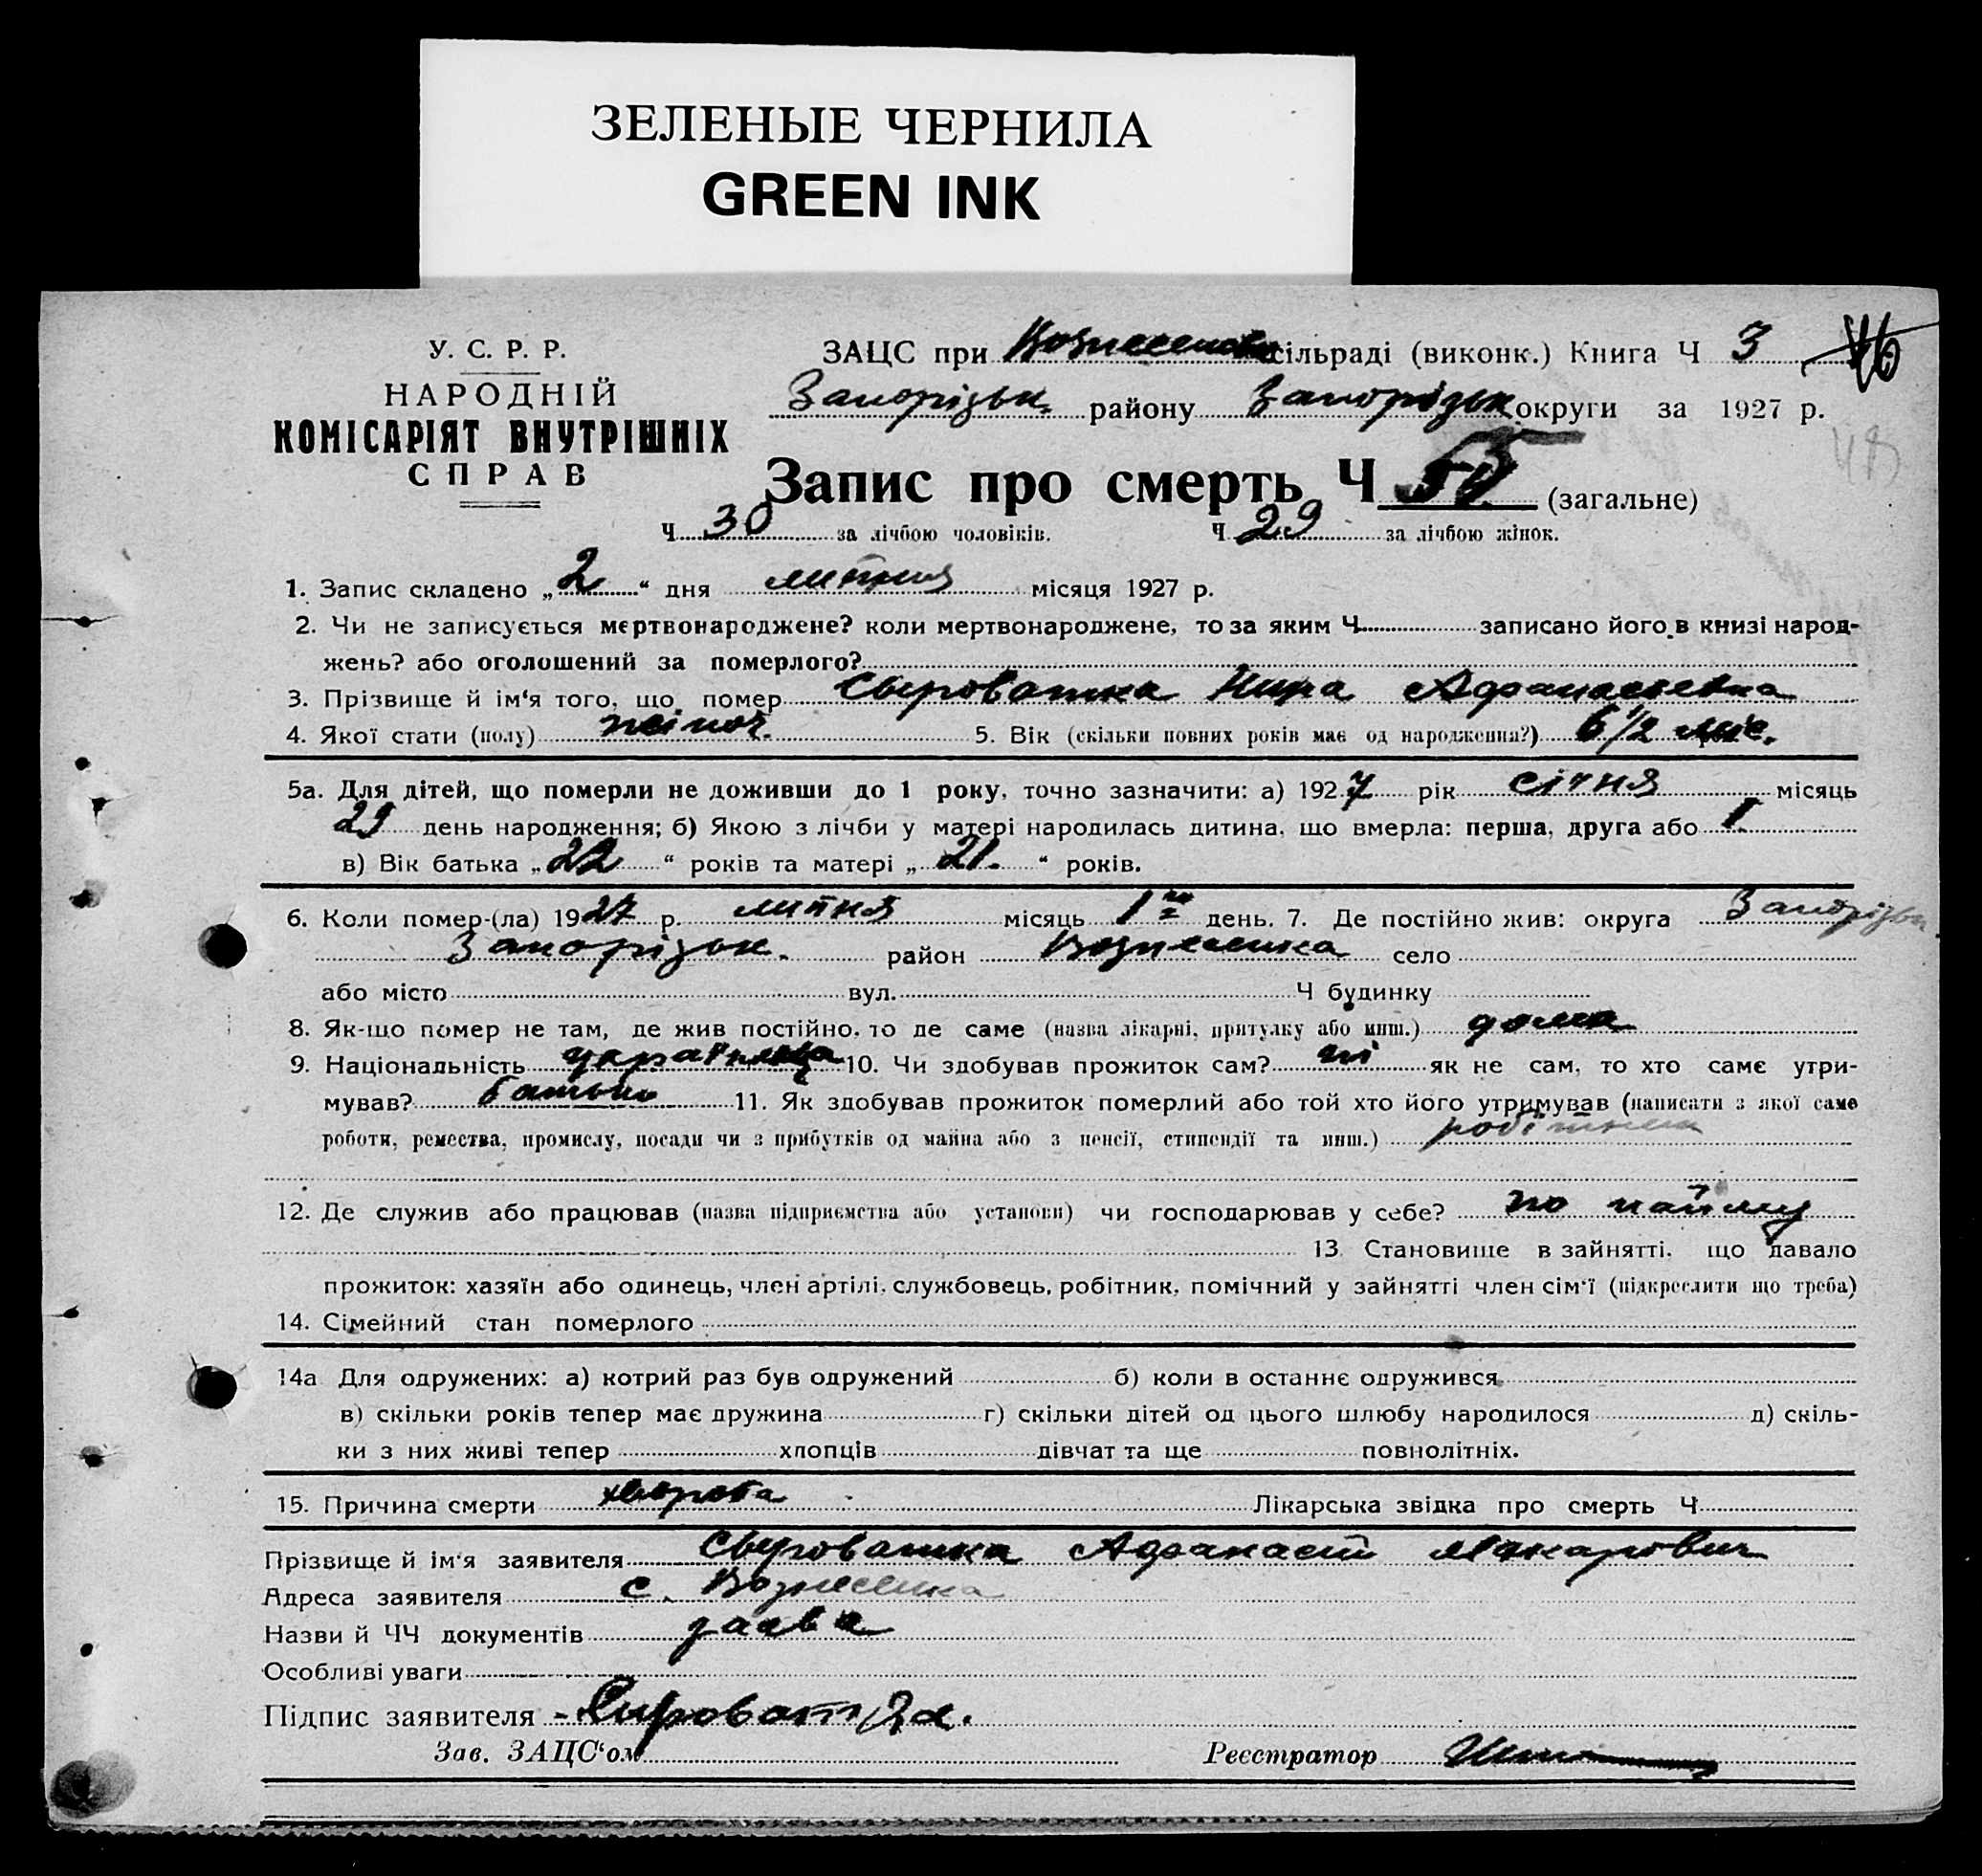 ЗЕЛЕНЫЕ ЧЕРНИЛА
GREEN INK
У. С. Р. Р.
НАРОДНІЙ
КОМІСАРІЯТ ВНУТРІШНІХ
СПРАВ
ЗАЦС при Вознесенов сільраді (виконк.) Книга Ч 3
Запорізьк. району Запорізьк округи за 1927 р.
Запис про смерть Ч (загальне)
Ч 30 за лічбою чоловіків. Ч 29 за лічбою жінок.
1. Запис складено „2“ дня липня місяця 1927 р.
2. Чи не записується мертвонароджене? коли мертвонароджене, то за яким Ч записано його в книзі народ-
жень? або оголошений за померлого?
3. Прізвище й ім‘я того, що помер Сыроватка Нира Афанасьевна
4. Якої стати (полу) жіноч. 5. Вік (скільки повних років має од народження?) 6 1/2 міс.
5а. Для дітей, що померли не доживши до 1 року, точно зазначити: а) 1927 рік січня місяць
29 день народження; б) Якою з лічби у матері народилась дитина, що вмерла: перша, друга або 1.
в) Вік батька „22“ років та матері „21.“ років.
6. Коли помер-(ла) 1927 р. липня місяць 1го день. 7. Де постійно жив: округа Запорізьк.
Запорізьк. район Вознесенка село
або місто вул. Ч будинку
8. Як-що помер не там, де жив постійно, то де саме (назва лікарні, притулку або инш.) дома
9. Національність українка 10. Чи здобував прожиток сам? ні як не сам, то хто саме утри-
мував? батько 11. Як здобував прожиток померлий або той хто його утримував (написати з якої саме
роботи, ремества, промислу, посади чи з прибутків од майна або з пенсії, стипендії та инш.) робітник
12. Де служив або працював (назва підприємства або установи) чи господарював у себе? по найму
13. Становище в зайнятті, що давало
прожиток: хазяїн або одинець, член артілі, службовець, робітник, помічний у зайнятті член сім‘ї (підкреслити що треба)
14. Сімейний стан померлого
14а Для одружених: а) котрий раз був одружений б) коли в останнє одружився
в) скільки років тепер має дружина г) скільки дітей од цього шлюбу народилося д) скіль-
ки з них живі тепер хлопців дівчат та ще повнолітніх.
15. Причина смерти хвороба Лікарська звідка про смерть Ч
Прізвище й ім‘я заявителя Сыроватка Афанасий Макарович
Адреса заявителя с. Вознесенка
Назви й ЧЧ документів заява
Особливі уваги
Підпис заявителя Сироватка.
Зав. ЗАЦС‘ом Реєстратор